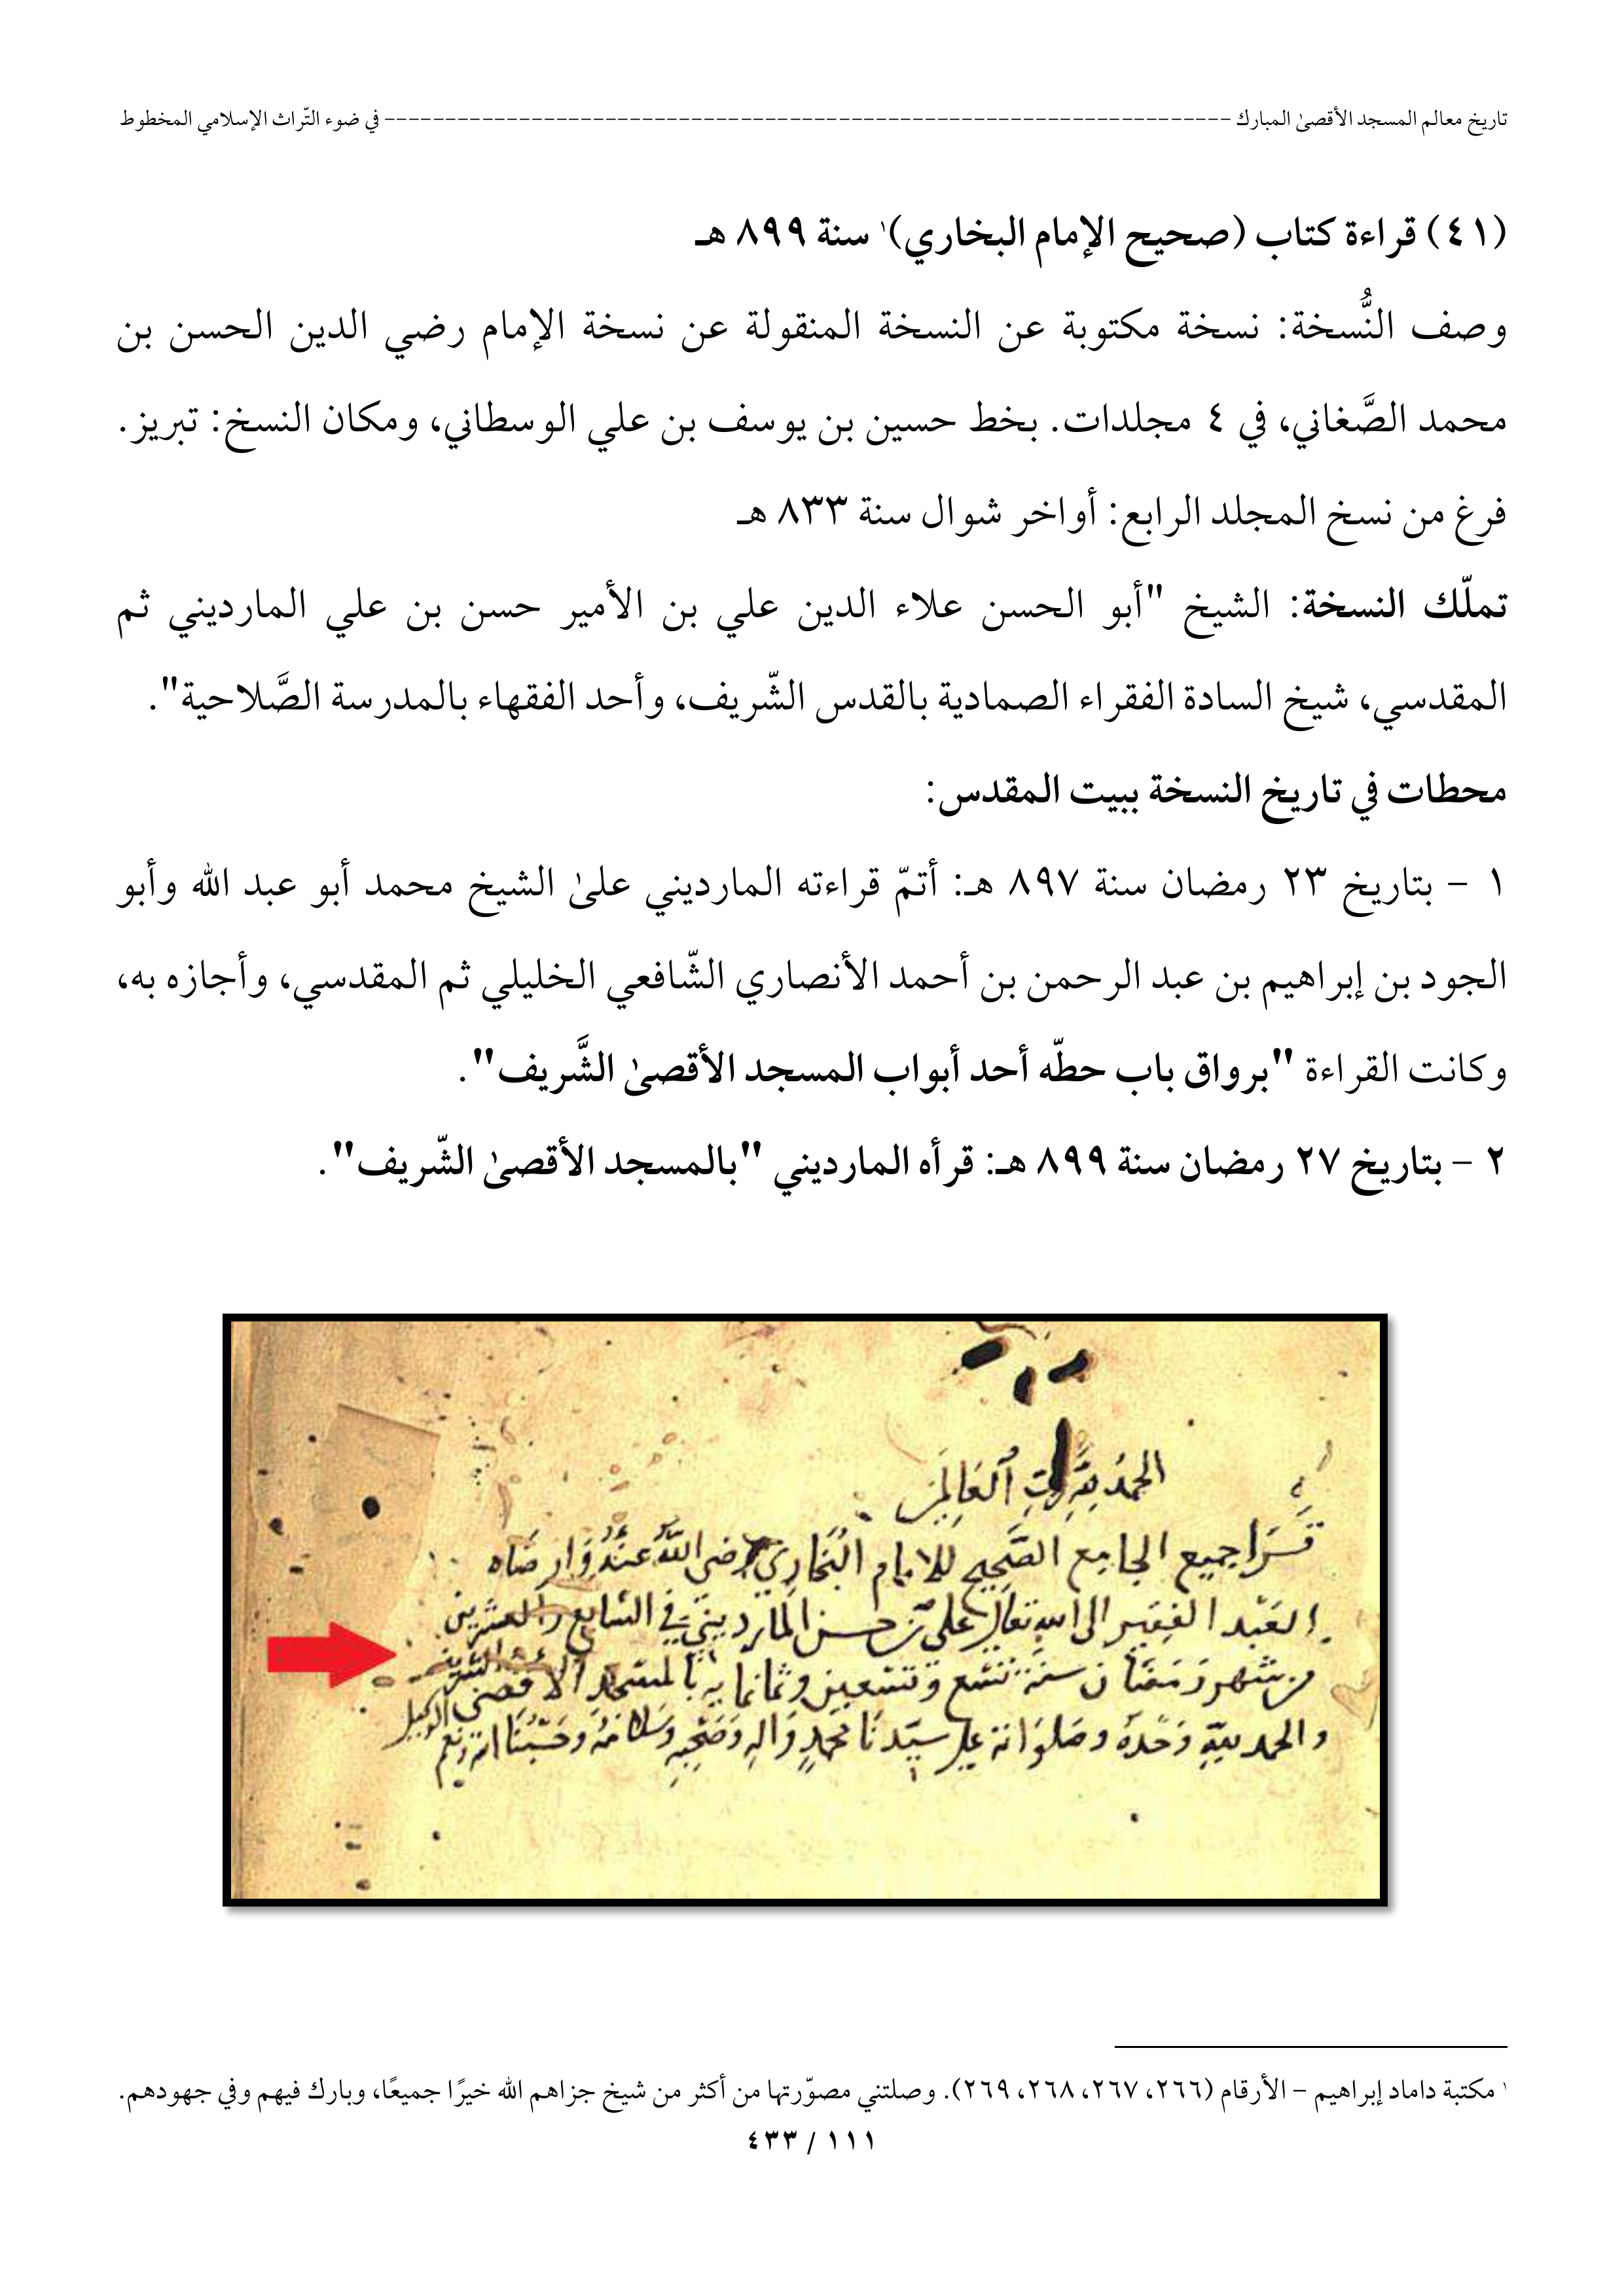 تاريخ معالم المسجد الأقصىٰ المبارك ---------------------------------------------------------------------- في ضوء التّراث الإسلامي المخطوط
(٤١) قراءة كتاب (صحيح الإمام البخاري)١ سنة ٨٩٩ هـ
وصف النُّسخة: نسخة مكتوبة عن النسخة المنقولة عن نسخة الإمام رضي الدين الحسن بن
محمد الصَّغاني، في ٤ مجلدات. بخط حسين بن يوسف بن علي الوسطاني، ومكان النسخ: تبريز.
فرغ من نسخ المجلد الرابع: أواخر شوال سنة ٨٣٣ هـ
تملّك النسخة: الشيخ "أبو الحسن علاء الدين علي بن الأمير حسن بن علي المارديني ثم
المقدسي، شيخ السادة الفقراء الصمادية بالقدس الشّريف، وأحد الفقهاء بالمدرسة الصَّلاحية".
محطات في تاريخ النسخة ببيت المقدس:
١ – بتاريخ ٢٣ رمضان سنة ٨٩٧ هـ: أتمّ قراءته المارديني علىٰ الشيخ محمد أبو عبد الله وأبو
الجود بن إبراهيم بن عبد الرحمن بن أحمد الأنصاري الشّافعي الخليلي ثم المقدسي، وأجازه به،
وكانت القراءة "برواق باب حطّه أحد أبواب المسجد الأقصىٰ الشَّريف".
٢ – بتاريخ ٢٧ رمضان سنة ٨٩٩ هـ: قرأه المارديني "بالمسجد الأقصىٰ الشّريف".
الحمد لله رب العالمين
قرا جميع الجامع الصحيح للامام البخاري رضي الله عنه وارضاه
العبد الفقير الى الله تعالى علي بن حسن المارديني في السابع والعشرين
من شهر رمضان سنة تسع وتسعين وثمانمايه بالمسجد الاقصى الشريف
والحمد لله وحده وصلواته على سيدنا محمد واله وصحبه وسلامه وحسبنا الله ونعم الوكيل
١ مكتبة داماد إبراهيم – الأرقام (٢٦٦، ٢٦٧، ٢٦٨، ٢٦٩). وصلتني مصوّرتها من أكثر من شيخ جزاهم الله خيرًا جميعًا، وبارك فيهم وفي جهودهم.
١١١ / ٤٣٣